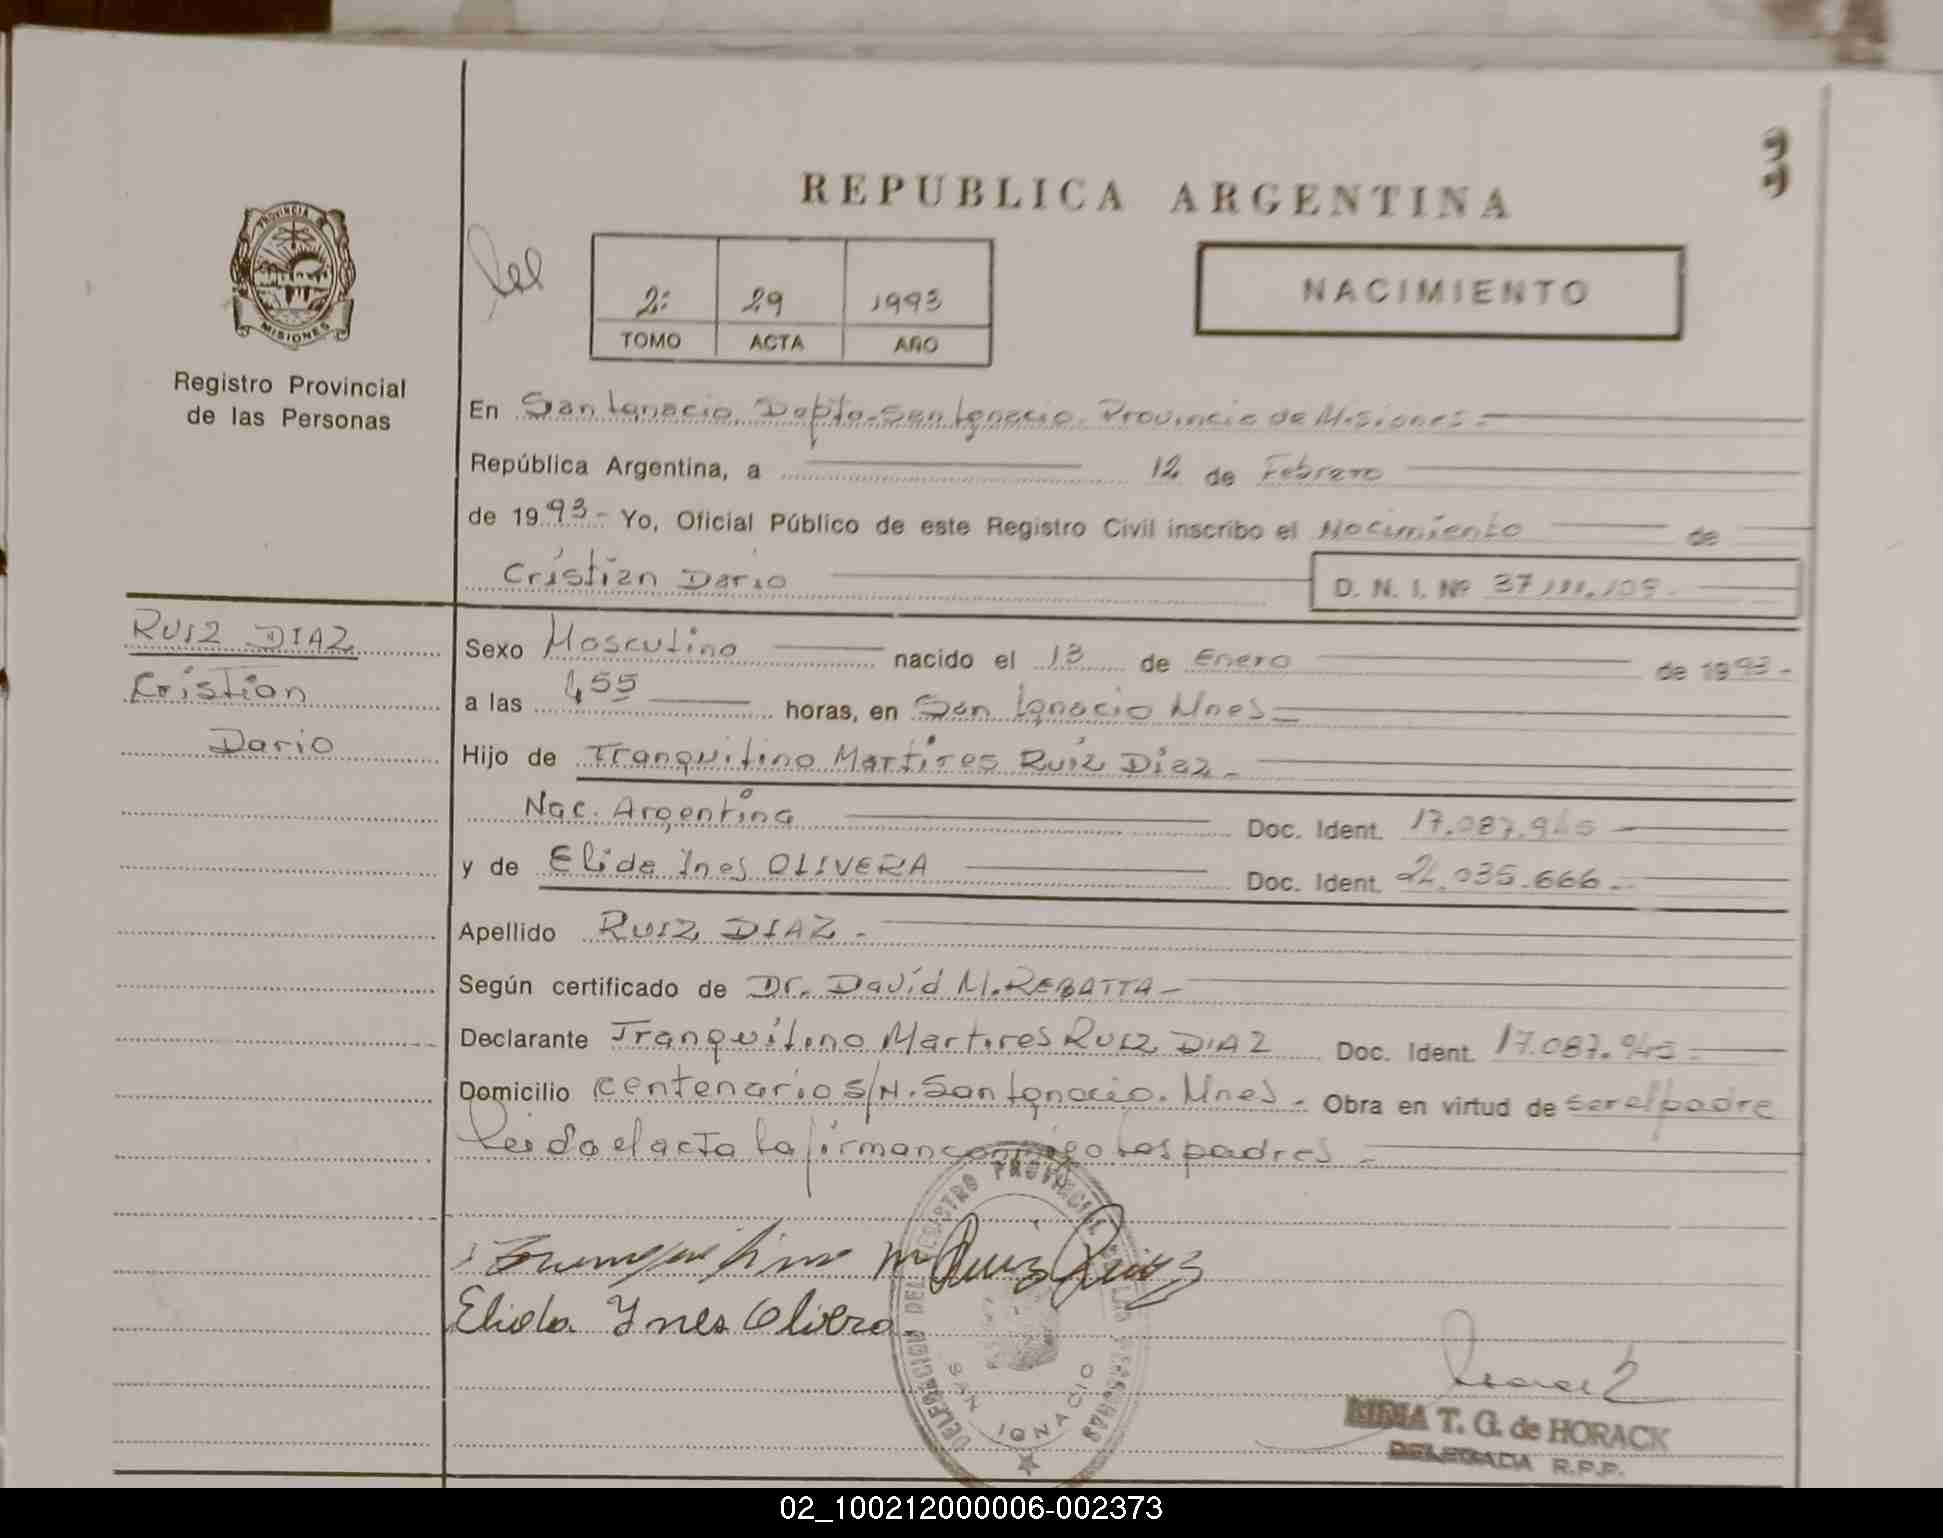 PROVINCIA DE
MISIONES
Registro Provincial
de las Personas
REPUBLICA ARGENTINA
NACIMIENTO
2: 29 1993
TOMO ACTA AÑO
En San Ignacio, Dapto. San Ignacio. Provincia de Misiones.
República Argentina, a 12 de Febrero
de 1993 - Yo, Oficial Público de este Registro Civil inscribo el Nacimiento de
Cristian Dario D. N. I. Nº 37.111.109
RUIZ DIAZ
Cristian
Dario
Sexo Masculino nacido el 13 de Enero de 1993 -
a las 4,55 horas, en San Ignacio Mnes
Hijo de Tranquilino Martires Ruiz Diaz -
Nac. Argentina Doc. Ident. 17.087.945
y de Elida Ines OLIVERA Doc. Ident. 24.035.666 -
Apellido RUIZ DIAZ -
Según certificado de Dr. David M. REBATTA -
Declarante Tranquilino Martires RUIZ DIAZ Doc. Ident. 17.087.945
Domicilio Centenario S/N. San Ignacio. Mnes - Obra en virtud de ser el padre
leido el acta la firman conmigo los padres -
Tranquilino M Ruiz Diaz
Elida Ynes Olivera
DELEGACION DEL REGISTRO PROVINCIAL DE LAS PERSONAS
SAN IGNACIO
T. G. de HORACK
DELEGADA R.P.P.
02_100212000006-002373